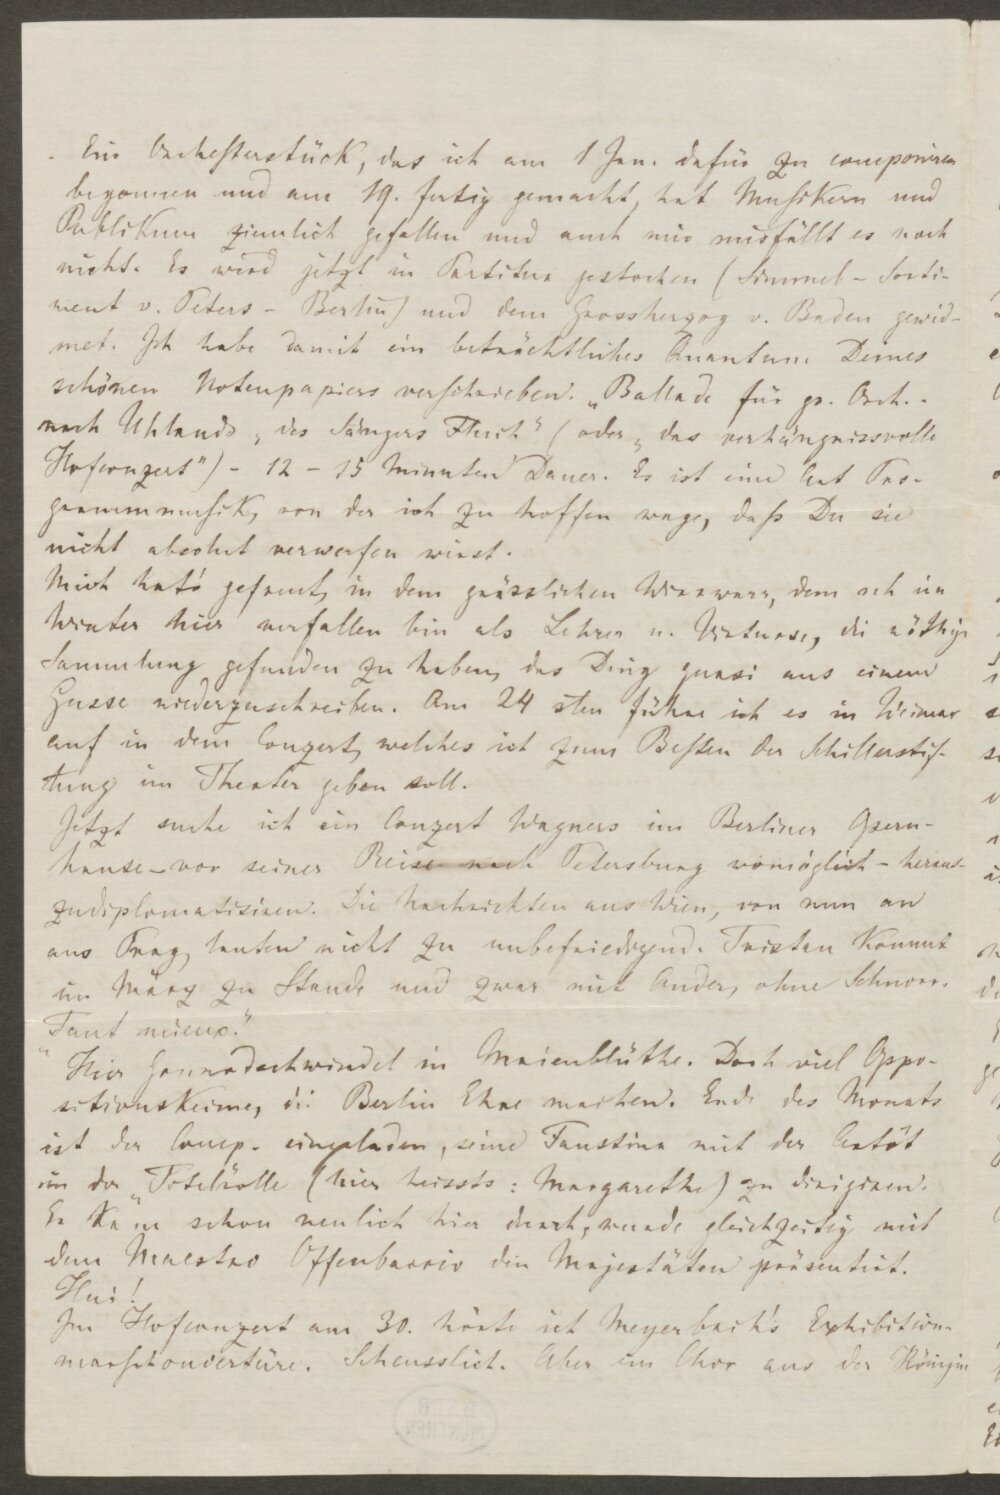 Ein Orchesterstück, das ich am 1 Jan. dafür zu componiren
begonnen und am 19. fertig gemacht, hat Musikern und
Publikum ziemlich gefallen und auch mir misfällt es noch
nicht. Es wird jetzt in Partitur gestochen (Simmel – Sorti-
ment v. Peters – Berlin) und dem Grossherzog v. Baden gewid-
met. Ich habe damit ein beträchtliches Quantum Deines
schönen Notenpapiers verschrieben. „Ballade für gr. Orch. –
nach Uhlands „des Sängers Fluch" (oder „das verhängnissvolle
Hofconzert") – 12 – 15 Minuten Dauer. Es ist eine Art Pro-
grammmusik, von der ich zu hoffen wage, daß Du sie
nicht absolut verwerfen wirst.
Mich hat's gefreut, in dem grässlichen Wirrwarr, dem ich im
Winter hier verfallen bin als Lehrer u. Virtuose, die nöthige
Sammlung gefunden zu haben, das Ding quasi aus einem
Gusse niederzuschreiben. Am 24 sten führe ich es in Weimar
auf in dem Conzert, welches ich zum Besten der Schillerstif-
tung im Theater geben soll.
Jetzt suche ich ein Conzert Wagners im Berliner Opern-
hause – vor seiner Reise nach Petersburg womöglich – heraus-
zudiplomatisiren. Die Nachrichten aus Wien, von nun an
aus Prag, lauten nicht zu unbefriedigend. Tristan kommt
im März zu Stande und zwar mit Ander, ohne Schnorr.
„Tant mieux."
Hier Gounodschwindel in Maienblüthe. Doch viel Oppo-
sitionskeime, die Berlin Ehre machen. Ende des Monats
ist der Comp. eingeladen, seine Faustina mit der Artôt
in der Titelrolle (hier heissts: Margarethe) zu dirigiren.
Er kam schon neulich hier durch, wurde gleichzeitig mit
dem Maestro Offenbaccio den Majestäten präsentirt.
Hui!
Im Hofconzert am 30. hörte ich Meyerbach's Exhibition-
marschouvertüre. Scheusslich. Aber ein Chor aus der Königin